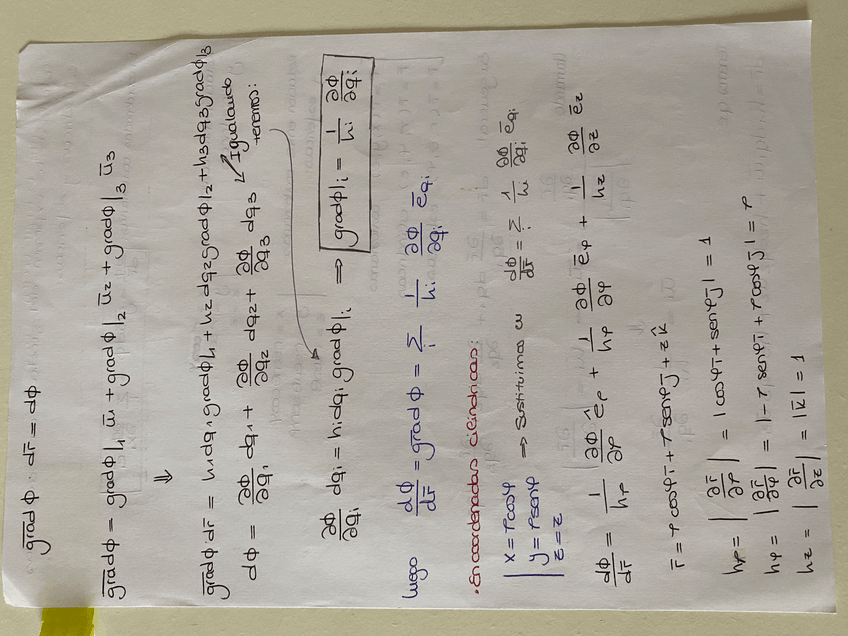 g̅r̅a̅d̅ ϕ · dr̅ = dϕ
g̅r̅a̅d̅ϕ = gradϕ|₁ u̅₁ + gradϕ|₂ u̅₂ + gradϕ|₃ u̅₃
⇓
g̅r̅a̅d̅ϕ dr̅ = h₁dq₁gradϕ|₁ + h₂dq₂gradϕ|₂ + h₃dq₃gradϕ|₃
dϕ = ∂ϕ/∂q₁ dq₁ + ∂ϕ/∂q₂ dq₂ + ∂ϕ/∂q₃ dq₃ ↙ Igualando tenemos:
∂ϕ/∂qᵢ dqᵢ = hᵢdqᵢgradϕ|ᵢ ⇒ gradϕ|ᵢ = 1/hᵢ ∂ϕ/∂qᵢ
luego dϕ/dr̅ = g̅r̅a̅d̅ϕ = Σᵢ 1/hᵢ ∂ϕ/∂qᵢ e̅qᵢ
· En coordenadas cilíndricas:
x = ρcosφ
y = ρsenφ ⇒ Sustituimos en dϕ/dr̅ = Σᵢ 1/hᵢ ∂ϕ/∂qᵢ e̅qᵢ
z = z
dϕ/dr̅ = 1/hρ ∂ϕ/∂ρ êρ + 1/hφ ∂ϕ/∂φ e̅φ + 1/hz ∂ϕ/∂z e̅z
r̅ = ρcosφi̅ + ρsenφj̅ + zk̂
hρ = |∂r̅/∂ρ| = |cosφi̅ + senφj̅| = 1
hφ = |∂r̅/∂φ| = |-ρsenφi̅ + ρcosφj̅| = ρ
hz = |∂r̅/∂z| = |k̅| = 1